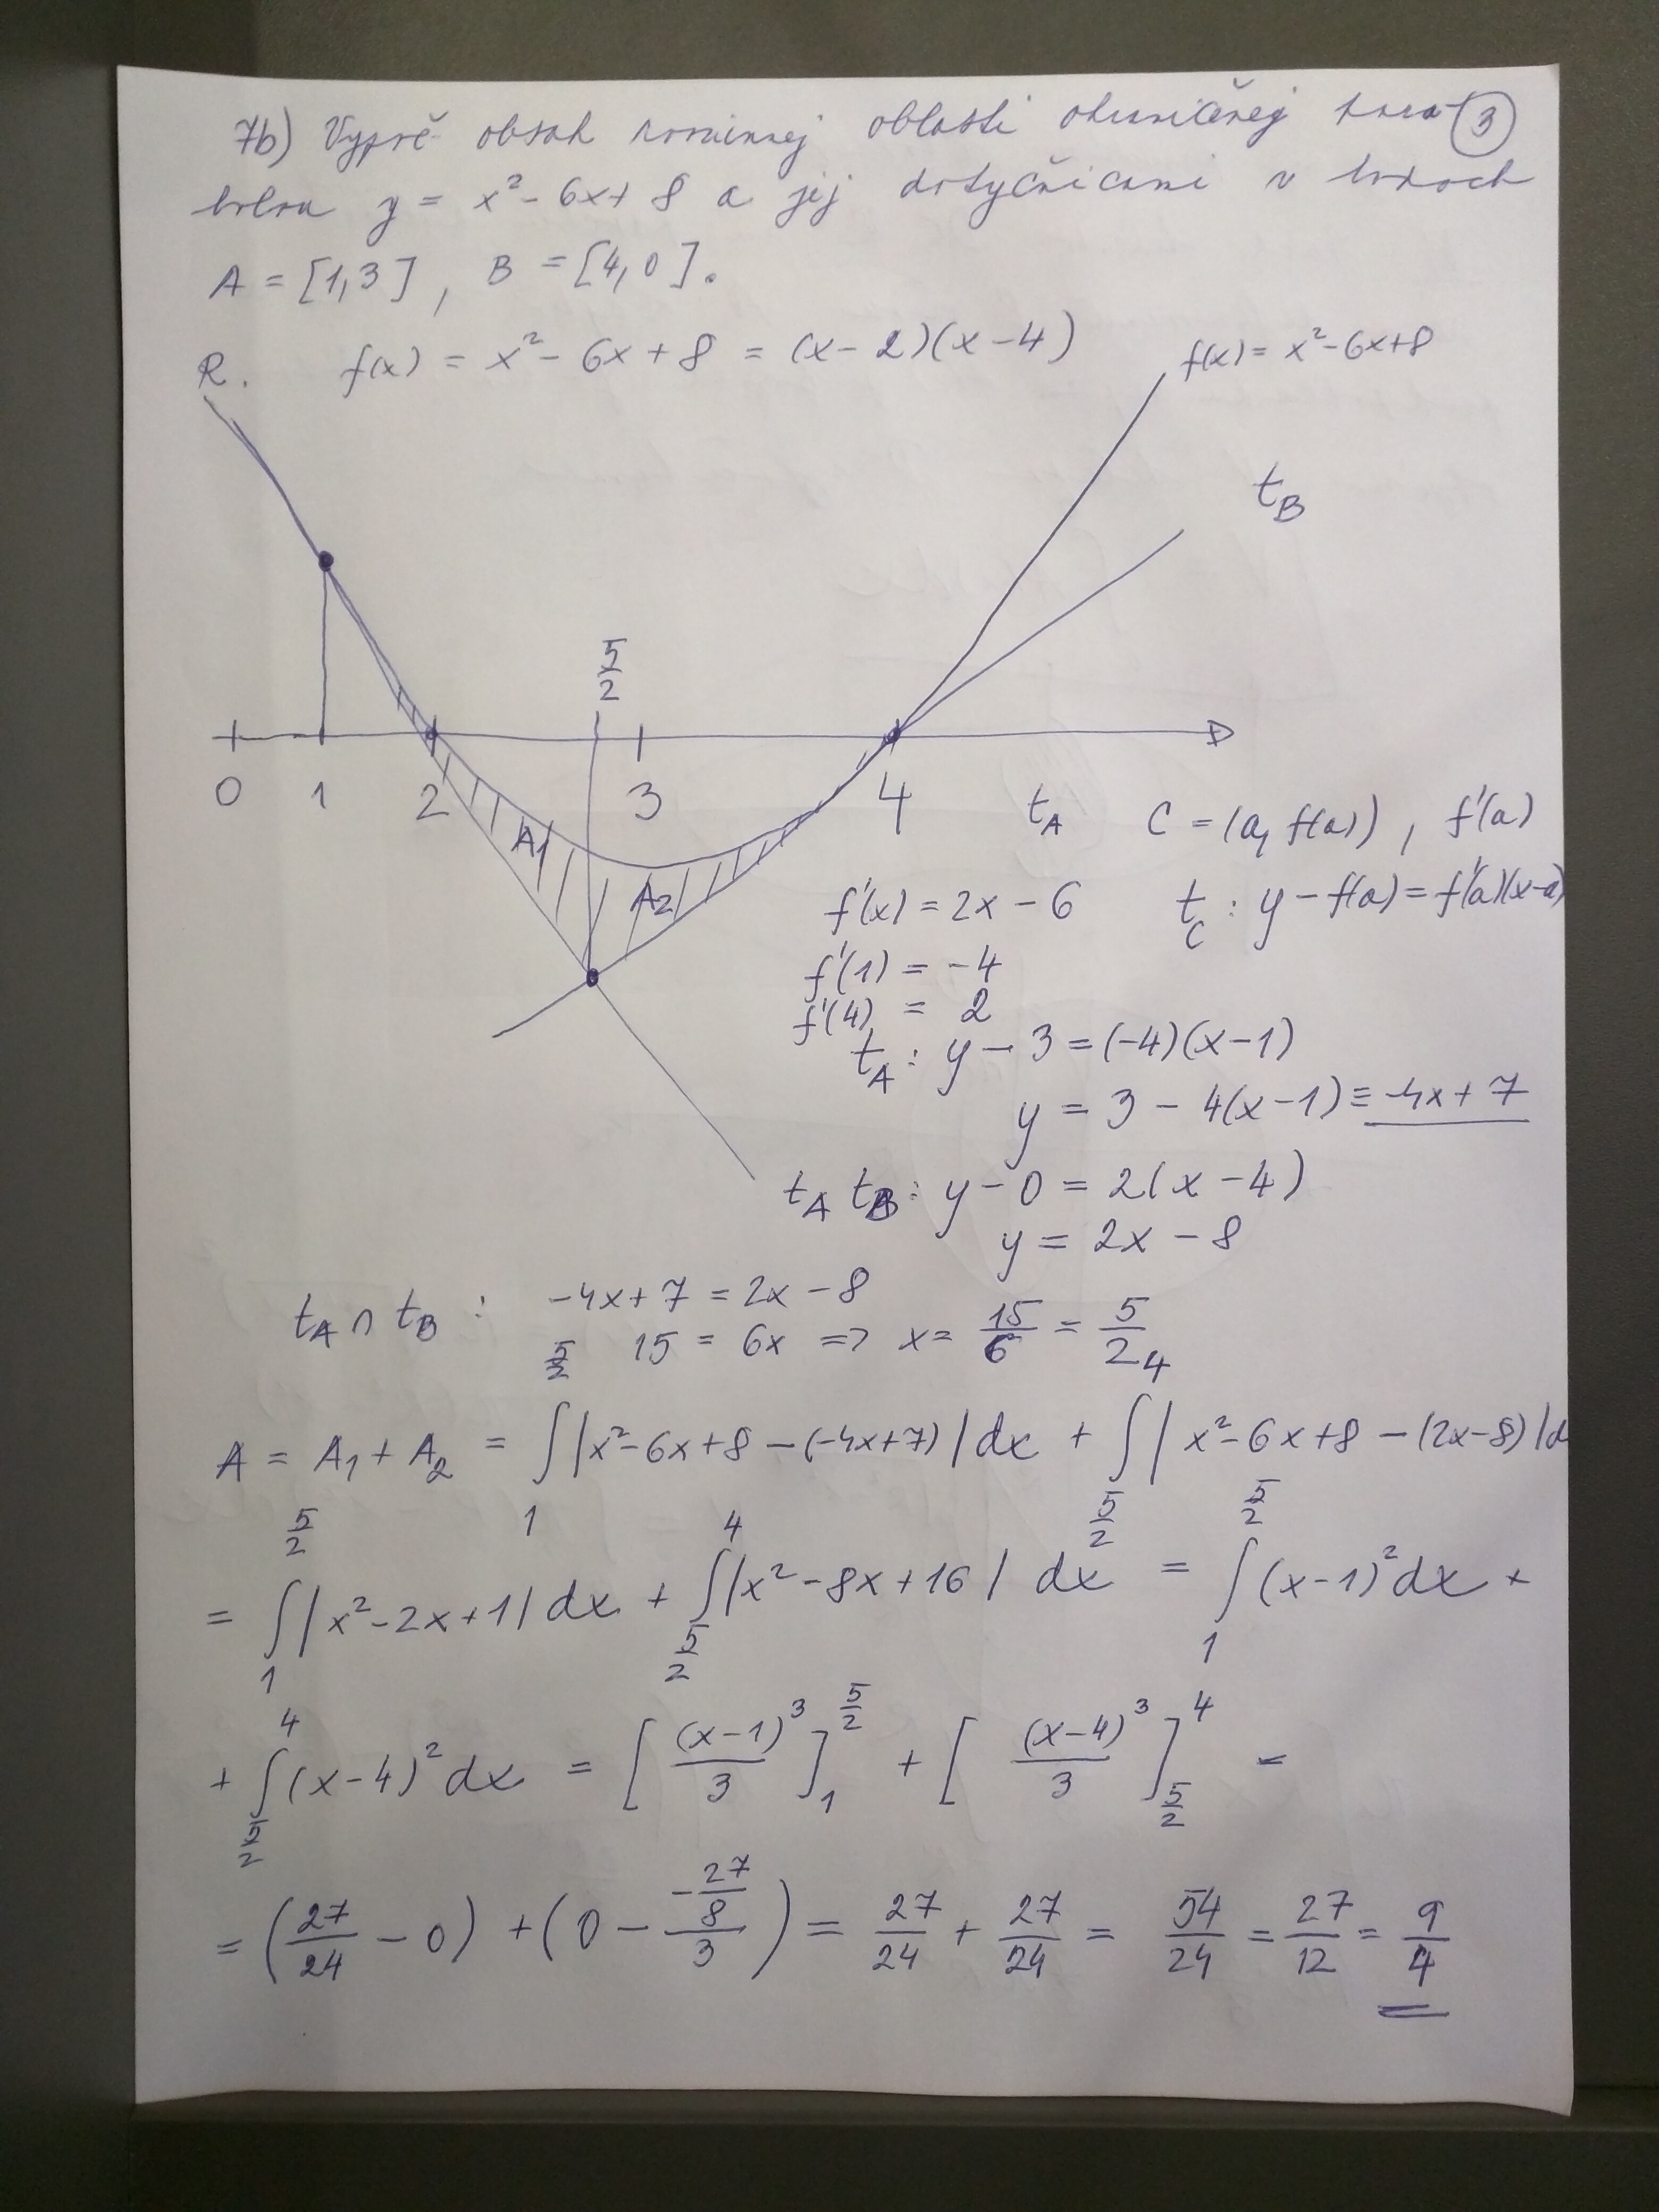 7b) Vyprč obsah rovinnej oblasti ohraničenej 3
y = x² - 6x + 8 a jej dotyčnicami v bodoch
A = [1,3], B = [4,0].
R. f(x) = x² - 6x + 8 = (x-2)(x-4)
f(x) = x²-6x+8
t_B
5/2
0 1 2 3 4
A₁
A₂
t_A
C = (a, f(a)), f'(a)
f'(x) = 2x - 6
t_C : y - f(a) = f'(a)(x-a)
f'(1) = -4
f'(4) = 2
t_A : y - 3 = (-4)(x-1)
y = 3 - 4(x-1) = -4x + 7
t_A
t_B : y - 0 = 2(x-4)
y = 2x - 8
t_A ∩ t_B : -4x+7 = 2x-8
15 = 6x => x = 15/6 = 5/2
A = A₁ + A₂ = ∫₁^{5/2} |x²-6x+8-(-4x+7)| dx + ∫_{5/2}^4 |x²-6x+8-(2x-8)| d
= ∫₁^{5/2} |x²-2x+1| dx + ∫_{5/2}^4 |x²-8x+16| dx = ∫₁^{5/2} (x-1)² dx +
+ ∫_{5/2}^4 (x-4)² dx = [(x-1)³/3]₁^{5/2} + [(x-4)³/3]_{5/2}^4 =
= (27/24 - 0) + (0 - (-27/8)/3) = 27/24 + 27/24 = 54/24 = 27/12 = 9/4